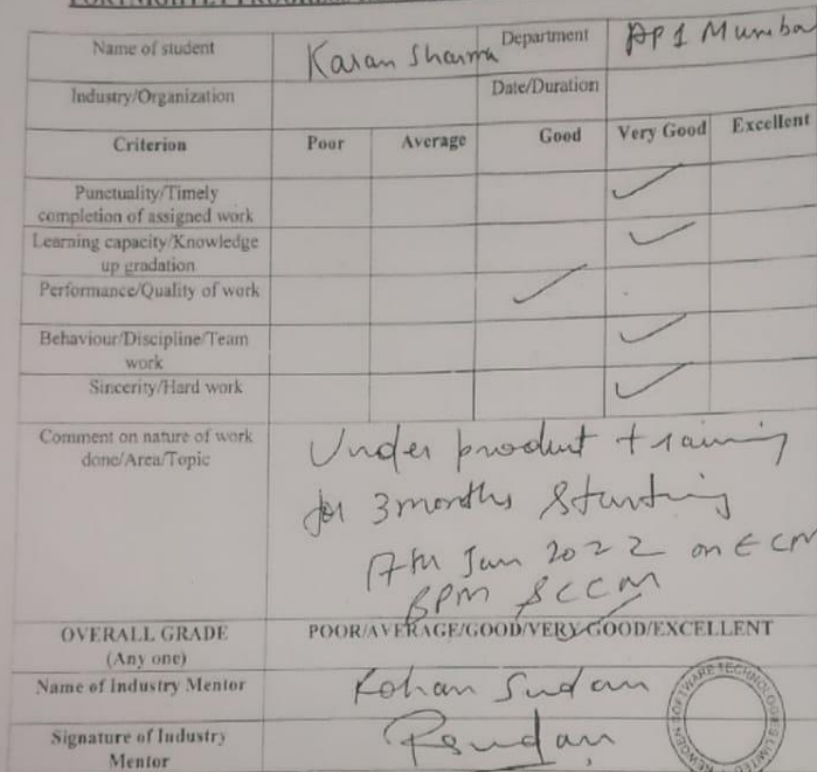 FORTNIGHTLY PROGRESS
Name of student Karan Sharma Department AP1 Mumbai
Industry/Organization Date/Duration
Criterion Poor Average Good Very Good Excellent
Punctuality/Timely
completion of assigned work ✓
Learning capacity/Knowledge
up gradation ✓
Performance/Quality of work ✓
Behaviour/Discipline/Team
work ✓
Sincerity/Hard work ✓
Comment on nature of work
done/Area/Topic
Under product training
for 3 months starting
17th Jan 2022 on ECM
BPM & CCM
OVERALL GRADE
(Any one)
POOR/AVERAGE/GOOD/VERY GOOD/EXCELLENT
Name of Industry Mentor Rohan Sudan
Signature of Industry
Mentor
RSudan
NEWGEN SOFTWARE TECHNOLOGIES LIMITED